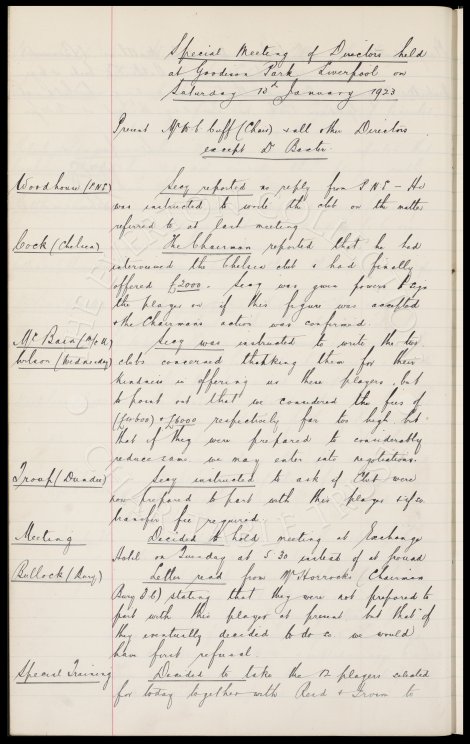 Special Meeting of Directors held
at Goodison Park Liverpool on
Saturday 13th January 1923
Present Mr W C Cuff (Chair) & all other Directors
except Dr Baxter.
Woodhouse (P.N.E) Secy reported no reply from P.N.E - He
was instructed to write the club on the matter
referred to at last meeting
Cock (Chelsea) The Chairman reported that he had
interviewed the Chelsea club & had finally
offered £2000. Secy was given powers to sign
the player on if this figure was accepted
& the Chairmans action was confirmed.
Mc Bain (M/c U.) Secy was instructed to write the two
Wilson (Wednesday) clubs concerned thanking them for their
kindness in offering us these players, but
to point out that we considered the fees of
& £6000 respectively far too high but
that if they were prepared to considerably
reduce same we may enter into negotiations.
Troup (Dundee) Secy instructed to ask if Club were
now prepared to part with this player & if so
transfer fee required
Meeting Decided to hold meeting at Exchange
Hotel on Tuesday at 5.30 instead of at ground
Bullock (Bury) Letter read from Mr Horrocks (Chairman
Bury F.C) stating that they were not prepared to
part with this player at present but that if
they eventually decided to do so we would
have first refusal.
Special Training Decided to take the 12 players selected
for today together with Reid & Irvin to